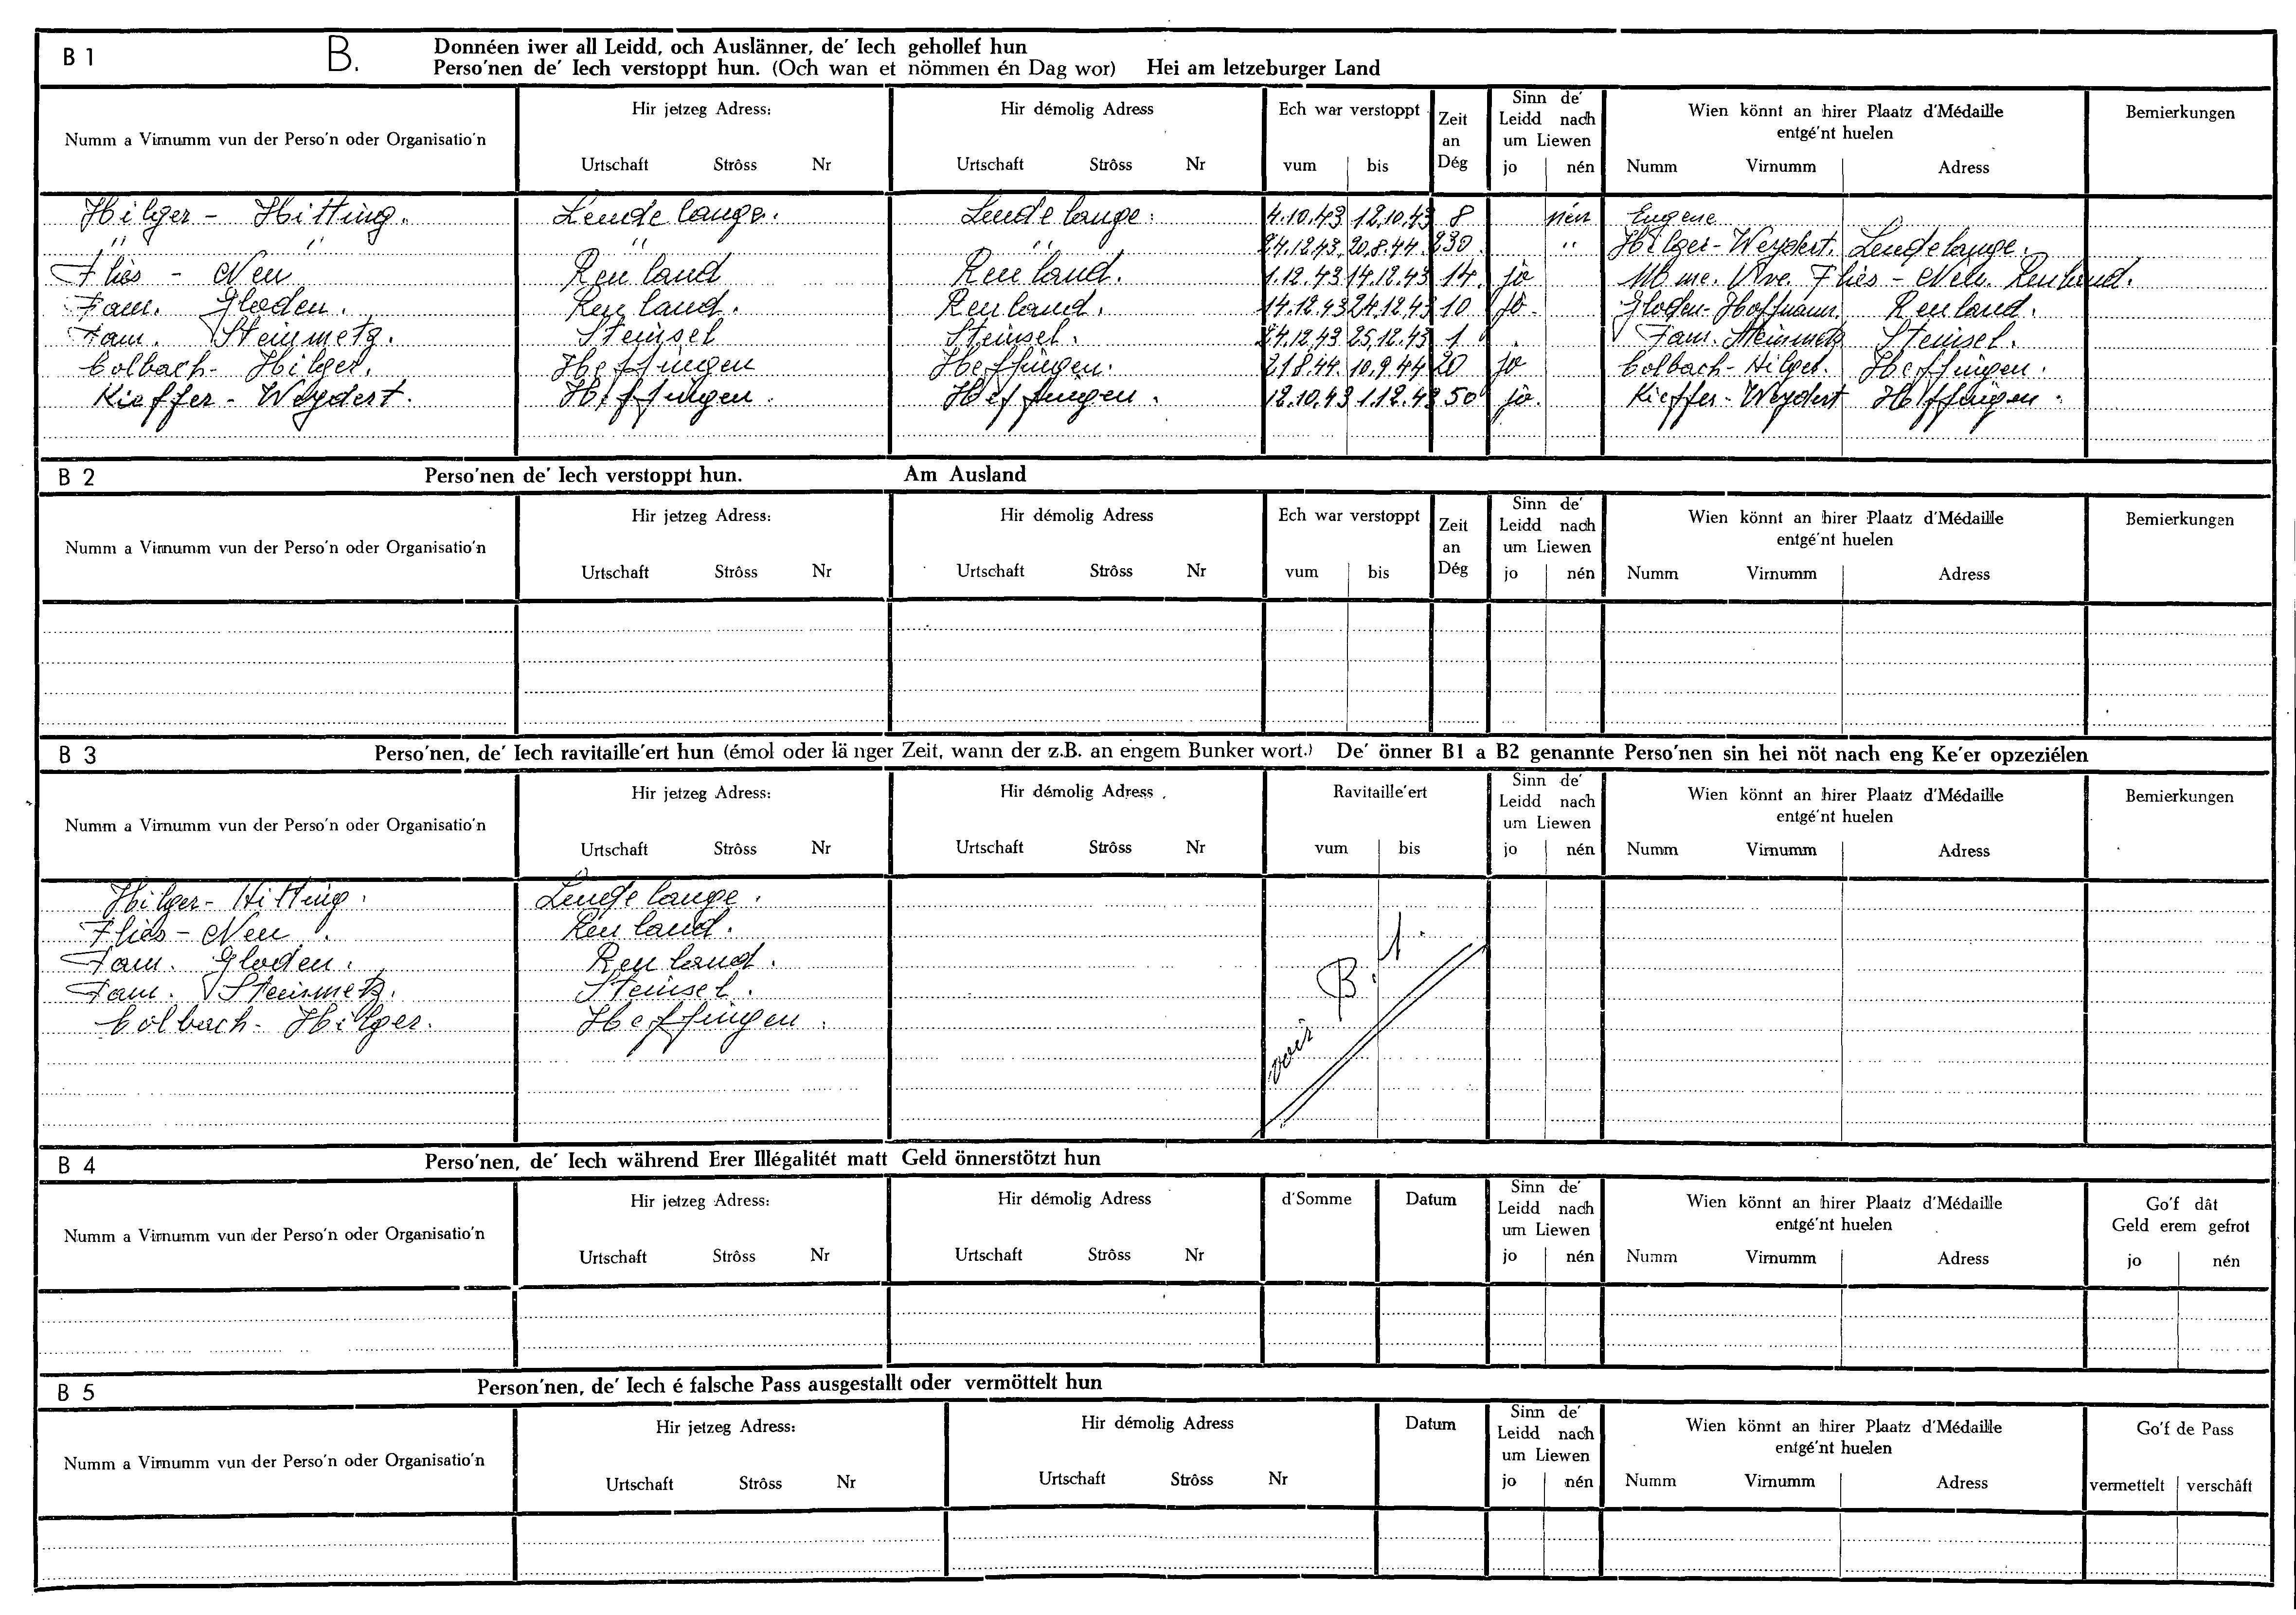 B 1 B. Donnéen iwer all Leidd, och Auslänner, de' Iech gehollef hun
Perso'nen de' Iech verstoppt hun. (Och wan et nömmen én Dag wor) Hei am letzeburger Land
Numm a Virnumm vun der Perso'n oder Organisatio'n
Hir jetzeg Adress:
Urtschaft Strôss Nr
Hir démolig Adress
Urtschaft Strôss Nr
Ech war verstoppt
vum bis
Zeit
an
Dég
Sinn de'
Leidd nach
um Liewen
jo nén
Wien könnt an hirer Plaatz d'Médaille
entgé'nt huelen
Numm Virnumm Adress
Bemierkungen
Hilger - Hitting. Leudelange. Leudelange. 4.10.43 12.10.43 8 nén Eugene
" " " " 24.12.43. 20.8.44. 230 " Hilger-Weydert. Leudelange.
Flies - Neu Reuland Reuland. 1.12.43 14.12.43 14. jo Mme. Vve. Flies - Neu. Reuland.
Fam. Gloden. Reuland. Reuland. 14.12.43 24.12.43 10 jo. Gloden-Hoffmann. Reuland.
Fam. Steinmetz. Steinsel Steinsel. 24.12.43 25.12.43 1 Fam. Steinmetz Steinsel.
Colbach - Hilger. Heffingen Heffingen. 21.8.44. 10.9.44 20 jo Colbach-Hilger. Heffingen.
Kieffer - Weydert. Heffingen. Heffingen. 12.10.43 1.12.43 50 jo. Kieffer-Weydert Heffingen.
B 2 Perso'nen de' Iech verstoppt hun. Am Ausland
Numm a Virnumm vun der Perso'n oder Organisatio'n
Hir jetzeg Adress:
Urtschaft Strôss Nr
Hir démolig Adress
Urtschaft Strôss Nr
Ech war verstoppt
vum bis
Zeit
an
Dég
Sinn de'
Leidd nach
um Liewen
jo nén
Wien könnt an hirer Plaatz d'Médaille
entgé'nt huelen
Numm Virnumm Adress
Bemierkungen
B 3 Perso'nen, de' Iech ravitaille'ert hun (émol oder länger Zeit, wann der z.B. an engem Bunker wort.) De' önner B1 a B2 genannte Perso'nen sin hei nöt nach eng Ke'er opzeziélen
Numm a Virnumm vun der Perso'n oder Organisatio'n
Hir jetzeg Adress:
Urtschaft Strôss Nr
Hir démolig Adress
Urtschaft Strôss Nr
Ravitaille'ert
vum bis
Sinn de'
Leidd nach
um Liewen
jo nén
Wien könnt an hirer Plaatz d'Médaille
entgé'nt huelen
Numm Virnumm Adress
Bemierkungen
Hilger - Hitting. Leudelange.
Flies - Neu. Reuland.
Fam. Gloden. Reuland.
Fam. Steinmetz. Steinsel.
Colbach - Hilger. Heffingen.
voir B. 1.
B 4 Perso'nen, de' Iech während Erer Illégalitét matt Geld önnerstötzt hun
Numm a Virnumm vun der Perso'n oder Organisatio'n
Hir jetzeg Adress:
Urtschaft Strôss Nr
Hir démolig Adress
Urtschaft Strôss Nr
d'Somme
Datum
Sinn de'
Leidd nach
um Liewen
jo nén
Wien könnt an hirer Plaatz d'Médaille
entgé'nt huelen
Numm Virnumm Adress
Go'f dât
Geld erem gefrot
jo nén
B 5 Person'nen, de' Iech é falsche Pass ausgestallt oder vermöttelt hun
Numm a Virnumm vun der Perso'n oder Organisatio'n
Hir jetzeg Adress:
Urtschaft Strôss Nr
Hir démolig Adress
Urtschaft Strôss Nr
Datum
Sinn de'
Leidd nach
um Liewen
jo nén
Wien könnt an hirer Plaatz d'Médaille
entgé'nt huelen
Numm Virnumm Adress
Go'f de Pass
vermettelt verschâft